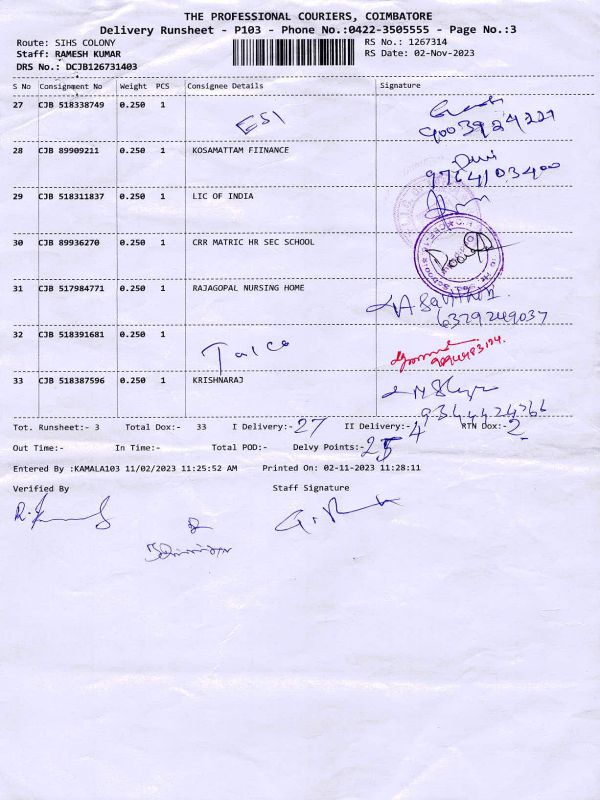 THE PROFESSIONAL COURIERS, COIMBATORE
Delivery Runsheet - P103 - Phone No.:0422-3505555 - Page No.:3
Route: SIHS COLONY
RS No.: 1267314
Staff: RAMESH KUMAR
RS Date: 02-Nov-2023
DRS No.: DCJB126731403
S No Consignment No Weight PCS Consignee Details Signature
27 CJB 518338749 0.250 1 ESI
9003924227
28 CJB 89909211 0.250 1 KOSAMATTAM FIINANCE
Devi
9764103400
29 CJB 518311837 0.250 1 LIC OF INDIA
30 CJB 89936270 0.250 1 CRR MATRIC HR SEC SCHOOL
31 CJB 517984771 0.250 1 RAJAGOPAL NURSING HOME
6379249037
32 CJB 518391681 0.250 1
33 CJB 518387596 0.250 1 KRISHNARAJ
9344424266
Tot. Runsheet:- 3 Total Dox:- 33 I Delivery:- 27 II Delivery:- 4 RTN Dox:- 2
Out Time:- In Time:- Total POD:- Delvy Points:- 25
Entered By :KAMALA103 11/02/2023 11:25:52 AM Printed On: 02-11-2023 11:28:11
Verified By Staff Signature